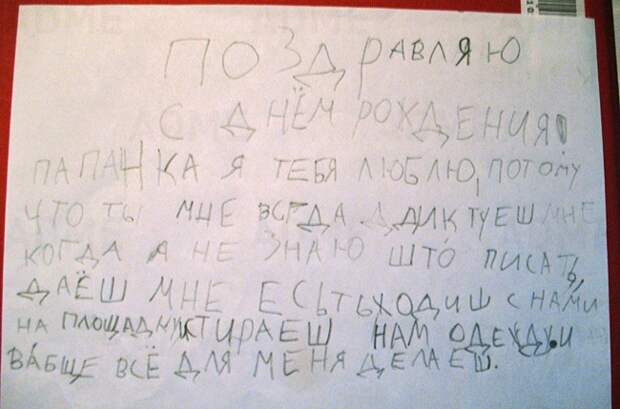 ПОЗДРАВЛЯЮ
С ДНЁМ РОХДЕНИЯ!
ПАПАНКА Я ТЕБЯ ЛЮБЛЮ, ПОТОМУ
ЧТО ТЫ МНЕ ВСЕГДА ДДИКТУЕШ МНЕ
КОГДА Я НЕ ЗНАЮ ШТО ПИСАТЬ,
ДАЁШ МНЕ ЕСЬТЬ ХОДИШ С НАМИ
НА ПЛОЩАДКУ СТИРАЕШ НАМ ОДЕХДУ. И
ВАБЩЕ ВСЁ ДЛЯ МЕНЯ ДЕЛАЕШ.